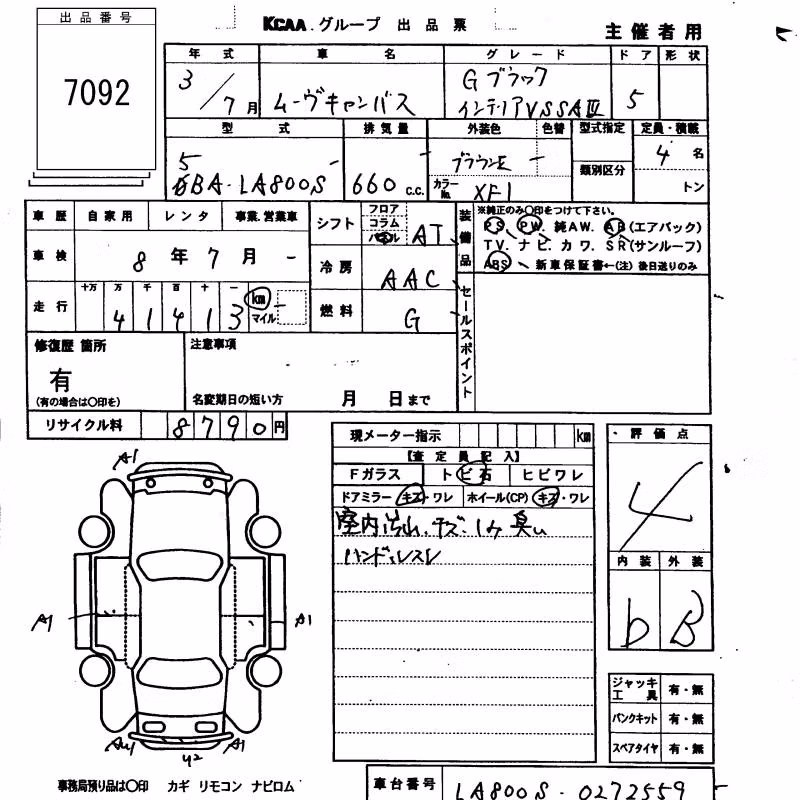 出品番号
7092
KCAA.グループ 出品票
主催者用
年式 車名 グレード ドア 形状
3/7月 ムーヴキャンバス Gブラック
インテリアVSSAⅢ 5
型式 排気量 外装色 色替 型式指定 定員・積載
5 ブラウンE 4名
6BA-LA800S 660 c.c. カラーNo. XF1 類別区分 トン
車歴 自家用 レンタ 事業.営業車
車検 8年7月
走行 十万 万 千 百 十 一
41413 km マイル
シフト フロア コラム パネル AT
冷房 AAC
燃料 G
装備品
※純正のみ〇印をつけて下さい。
PS. PW. 純AW. AB(エアバック)
TV. ナビ. カワ. SR(サンルーフ)
ABS 新車保証書←(注)後日送りのみ
セールスポイント
修復歴 箇所
有
(有の場合は〇印を)
注意事項
名変期日の短い方 月 日まで
リサイクル料 8790円
現メーター指示 km
【査定員記入】
Fガラス トビ石 ヒビワレ
ドアミラー キズ・ワレ ホイール(CP) キズ・ワレ
室内汚れ.キズ.シミ 臭い
ハンドルスレ
・評価点
4
内装 外装
b B
A1
A1
A1
A1
U2
ジャッキ工具 有・無
パンクキット 有・無
スペアタイヤ 有・無
事務局預り品は〇印 カギ リモコン ナビロム
車台番号 LA800S-0272559